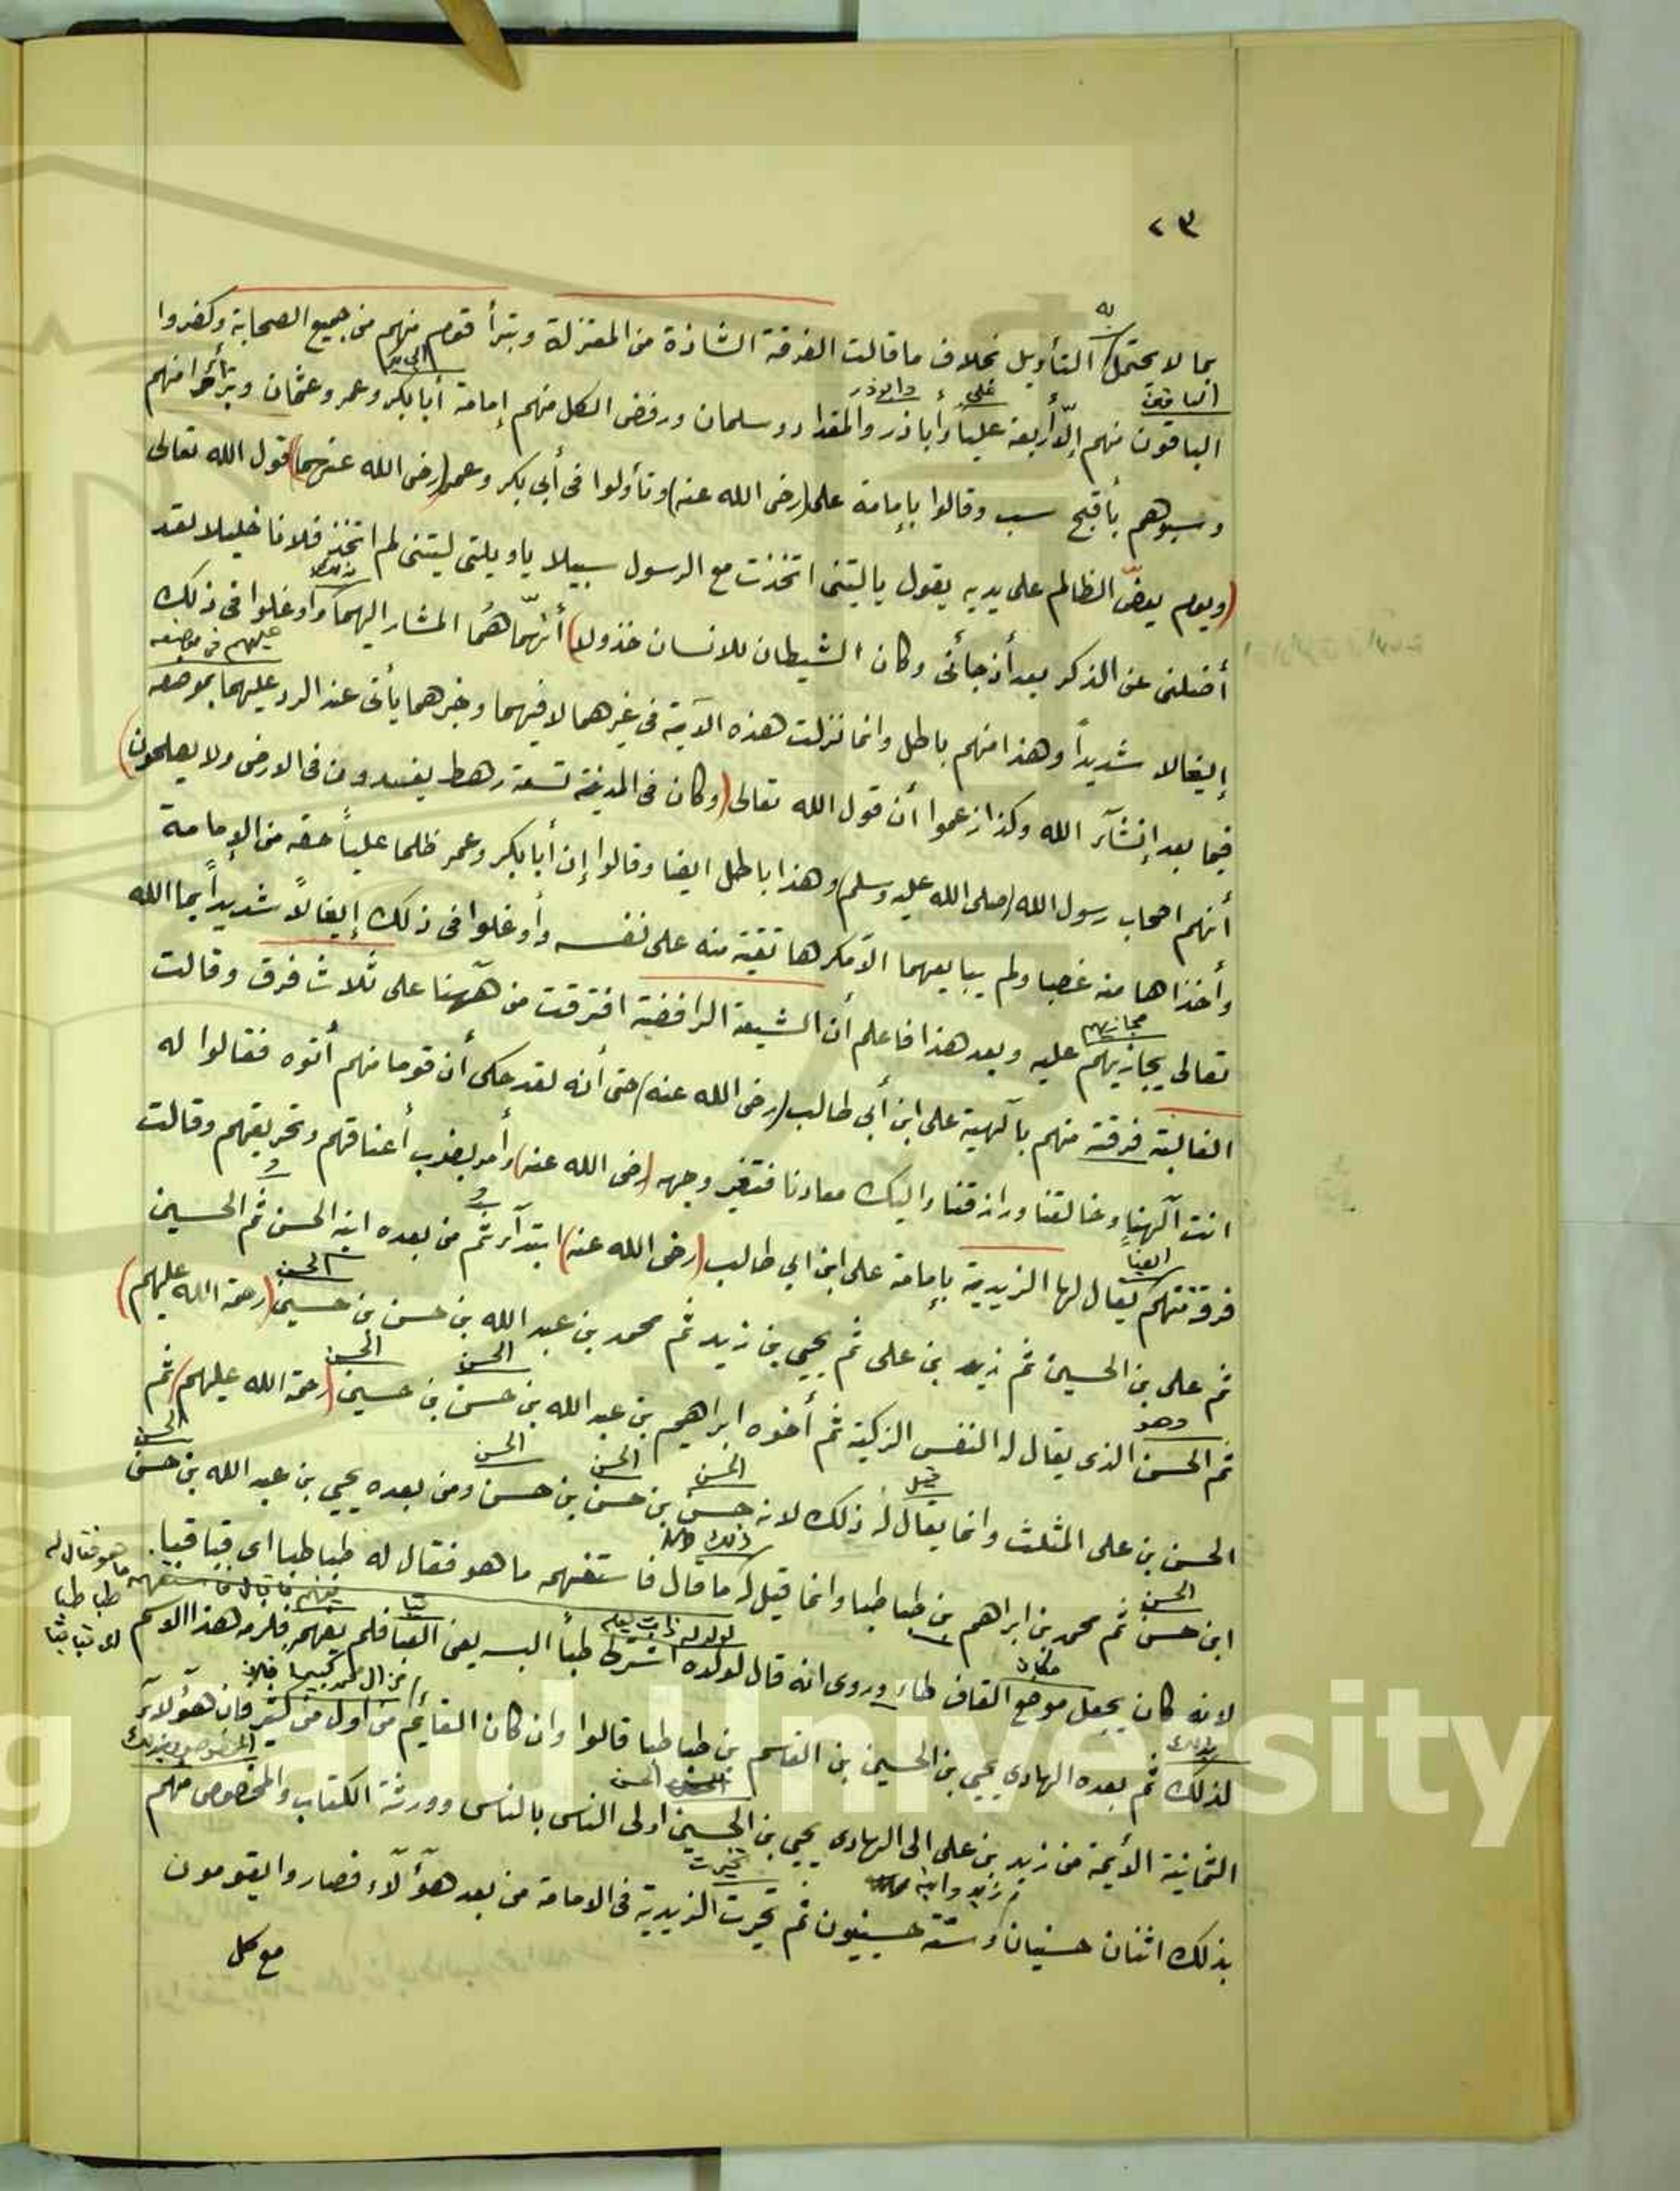 ٢٣
بما لا يحتمل التأويل بخلاف ما قالت الفرقة الشاذة من المعتزلة وتبرأ قوم منهم من جميع الصحابة وكفروا
الباقون منهم إلّا أربعة علياً وأبا ذر والمقداد وسلمان ورفض الكل منهم إمامة أبا بكر وعمر وعثمان وتبرأوا منهم
وسبوهم بأقبح سب وقالوا بإمامة على (رضى الله عنه) وتأولوا فى أبي بكر وعمر (رضى الله عنهما) قول الله تعالى
(ويوم يعضّ الظالم على يديه يقول يا ليتنى اتخذت مع الرسول سبيلا يا ويلتى ليتنى لم اتخذ فلانا خليلا لقد
أضلنى عن الذكر بعد أن جأنى وكان الشيطان للانسان خذولا) أنّهما هُما المشار اليهما وأوغلوا فى ذلك
إيغالا شديداً وهذا منهم باطل وانما نزلت هذه الآية فى غيرهما لا فيهما وخبرهما يأتى عند الرد عليهما بموضعه
فيما بعد إنشآء الله وكذا زعموا أن قول الله تعالى (وكان فى المدينة تسعة رهط يفسدون فى الارض ولا يصلحون)
أنهم اصحاب رسول الله (صلى الله عليه وسلم) وهذا باطل ايضا وقالوا إن أبا بكر وعمر ظلما علياً حقه من الإمامة
وأخذاها منه غصبا ولم يبايعهما الا مكرها تقية منه على نفسه وأوغلوا فى ذلك إيغالاً شديداً بما الله
تعالى يجازيهم عليه وبعد هذا فاعلم أن الشيعة الرافضة افترقت من هآهنا على ثلاث فرق وقالت
الغالية فرقة منهم بآلهية على ابن أبي طالب (رضى الله عنه) حتى أنه لقد حكى أن قوما منهم أتوه فقالوا له
انت آلهنا وخالقنا ورازقنا واليك معادنا فتغير وجهه (رضى الله عنه) وأمر بضرب أعناقهم وتحريقهم وقالت
فرقة منهم يقال لها الزيدية بإمامة على ابن ابي طالب (رضى الله عنه) ابتدآء ثم من بعده ابنه الحسن ثم الحسين
ثم على بن الحسين ثم زيد بن على ثم يحيى بن زيد ثم محمد بن عبد الله بن حسن بن حسين (رحمة الله عليهم)
ثم الحسن الذى يقال له النفس الزكية ثم أخوه ابراهيم بن عبد الله بن حسن بن حسين (رحمة الله عليهم) ثم
الحسن بن على المثلث وانما يقال له ذلك لانه حسن بن حسن بن حسن ومن بعده يحيى بن عبد الله بن حسن
ابن حسن ثم محمد بن ابراهم بن طباطبا وانما قيل له ما قال فاستفهمه ما هو فقال له طباطبا اى قبا قبا.
لانه كان يجعل موضع القاف طاء وروى انه قال لولده اشترلى طبأ البسه يعنى القبا فلم يفهم فلزمه هذا الاسم
لذلك ثم بعده الهادى يحيى بن الحسين بن القاسم بن طباطبا قالوا وان كان القآئم من اول من كثير فان هؤلآء
الثمانية الأئمة من زيد بن على الى الهادى يحيى بن الحسين اولى الناس بالناس وورثة الكتاب والمخصوص منهم
بذلك اثنان حسنيان وستة حسينيون ثم تحيرت الزيدية فى الامامة من بعد هؤلآء فصاروا يقومون
مع كل